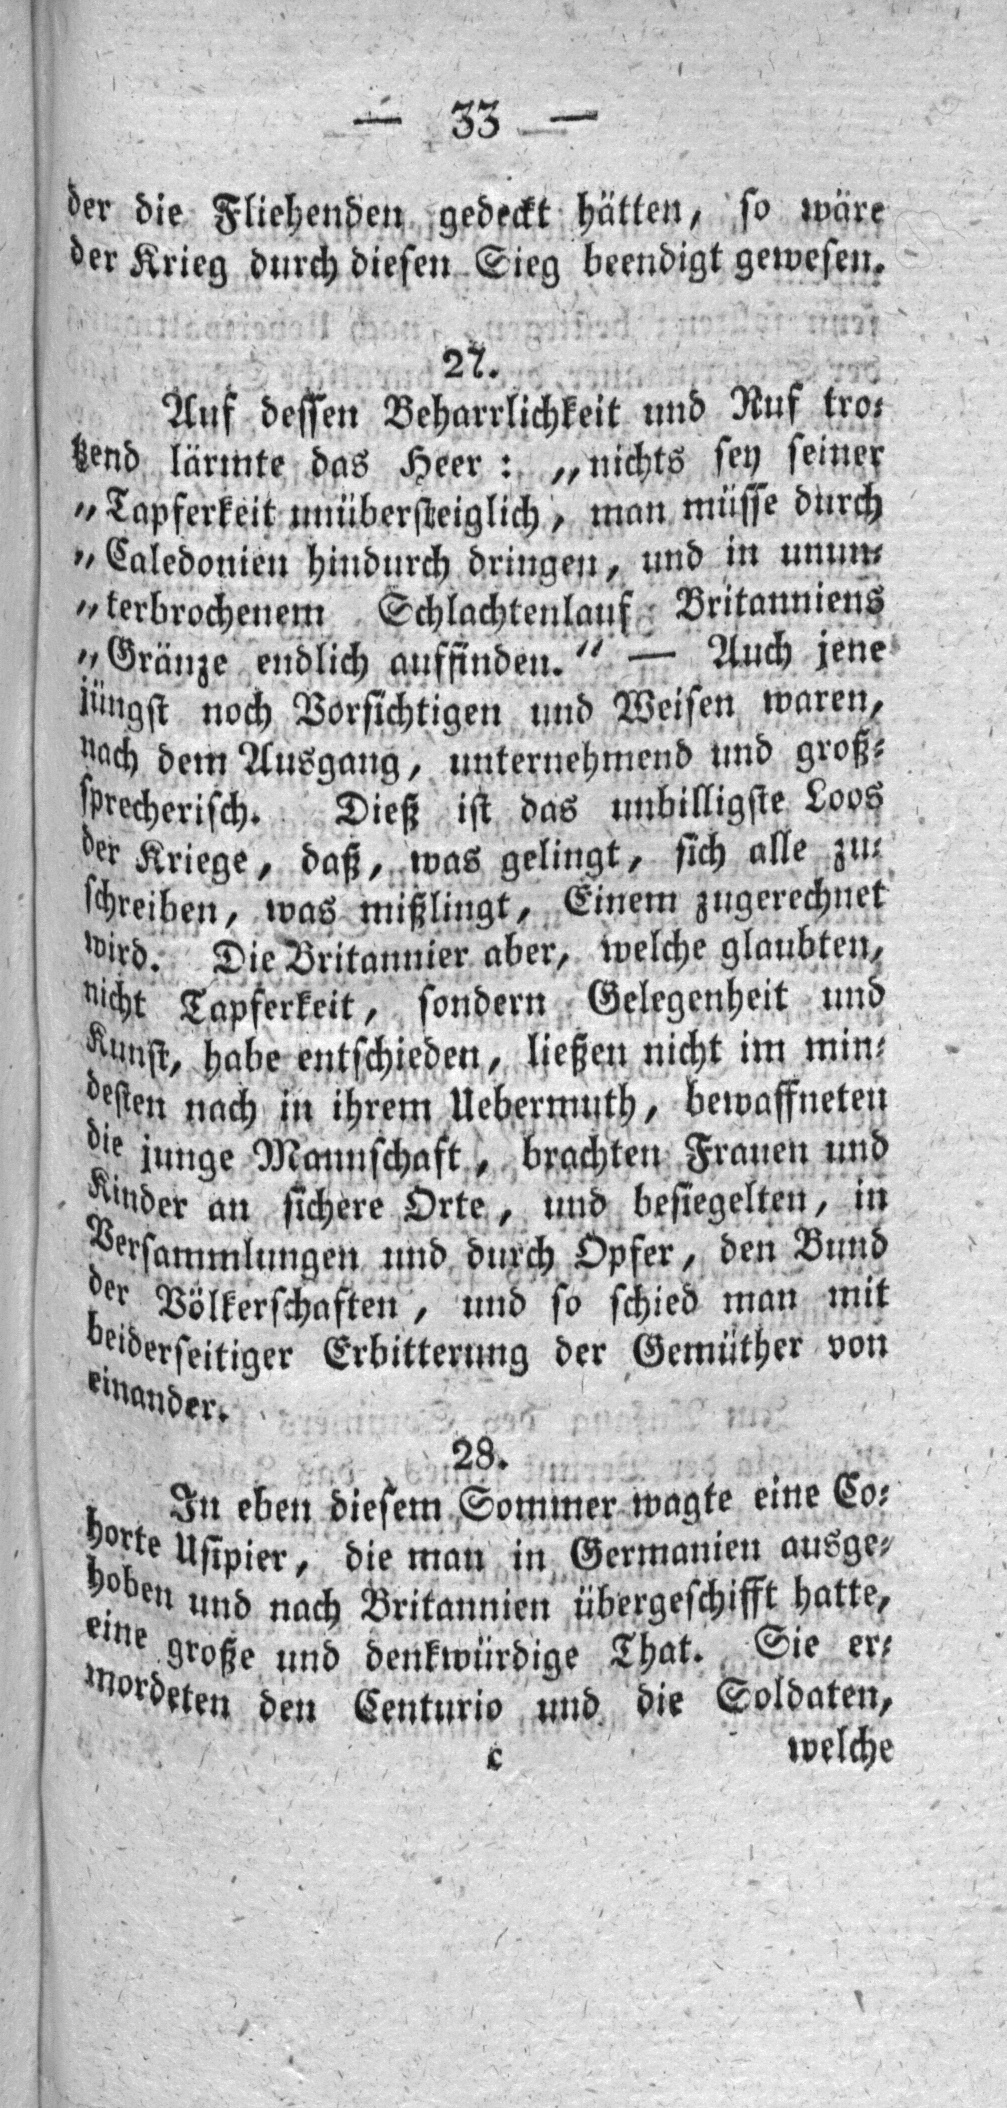 — 33 —
der die Fliehenden gedeckt hätten, so wäre
der Krieg durch diesen Sieg beendigt gewesen.
27.
Auf dessen Beharrlichkeit und Ruf tro-
tzend lärmte das Heer: „nichts sey seiner
„Tapferkeit unübersteiglich, man müsse durch
„Caledonien hindurch dringen, und in unun-
„terbrochenem Schlachtenlauf Britanniens
„Gränze endlich auffinden.“ — Auch jene
jüngst noch Vorsichtigen und Weisen waren,
nach dem Ausgang, unternehmend und groß-
sprecherisch. Dieß ist das unbilligste Loos
der Kriege, daß, was gelingt, sich alle zu-
schreiben, was mißlingt, Einem zugerechnet
wird. Die Britannier aber, welche glaubten,
nicht Tapferkeit, sondern Gelegenheit und
Kunst, habe entschieden, ließen nicht im min-
desten nach in ihrem Uebermuth, bewaffneten
die junge Mannschaft, brachten Frauen und
Kinder an sichere Orte, und besiegelten, in
Versammlungen und durch Opfer, den Bund
der Völkerschaften, und so schied man mit
beiderseitiger Erbitterung der Gemüther von
einander.
28.
In eben diesem Sommer wagte eine Co-
horte Usipier, die man in Germanien ausge-
hoben und nach Britannien übergeschifft hatte,
eine große und denkwürdige That. Sie er-
mordeten den Centurio und die Soldaten,
c welche